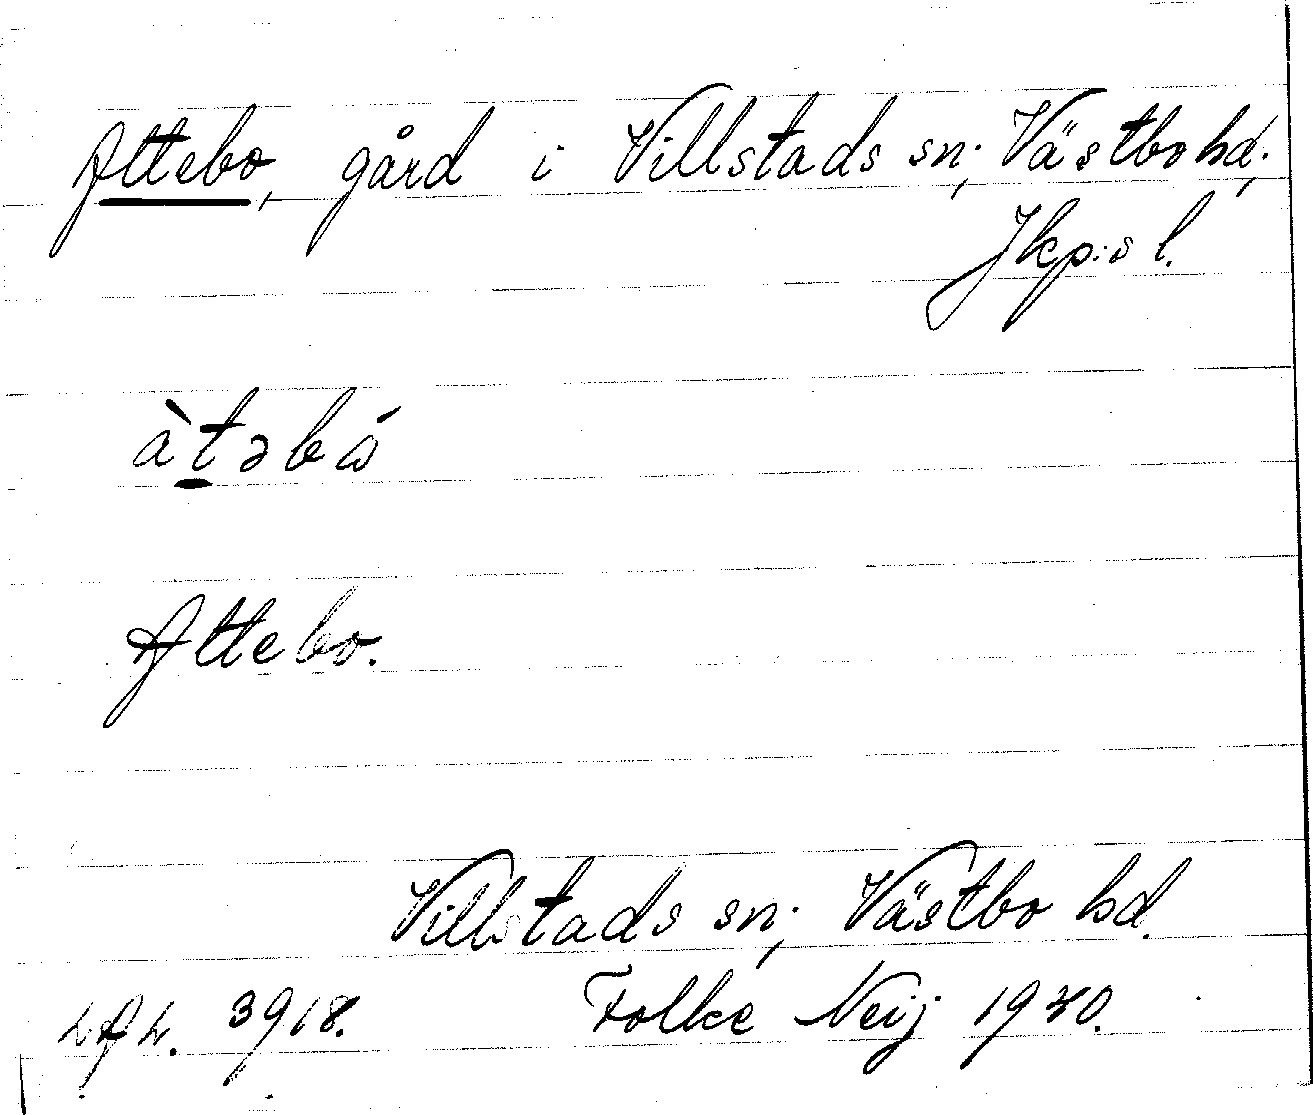 Attebo, gård i Villstads sn., Västbo hd.,
Jkp:s l.
àtəbó
Attebo.
Villstads sn., Västbo hd.
LAL. 3918. Folke Neij 1930.